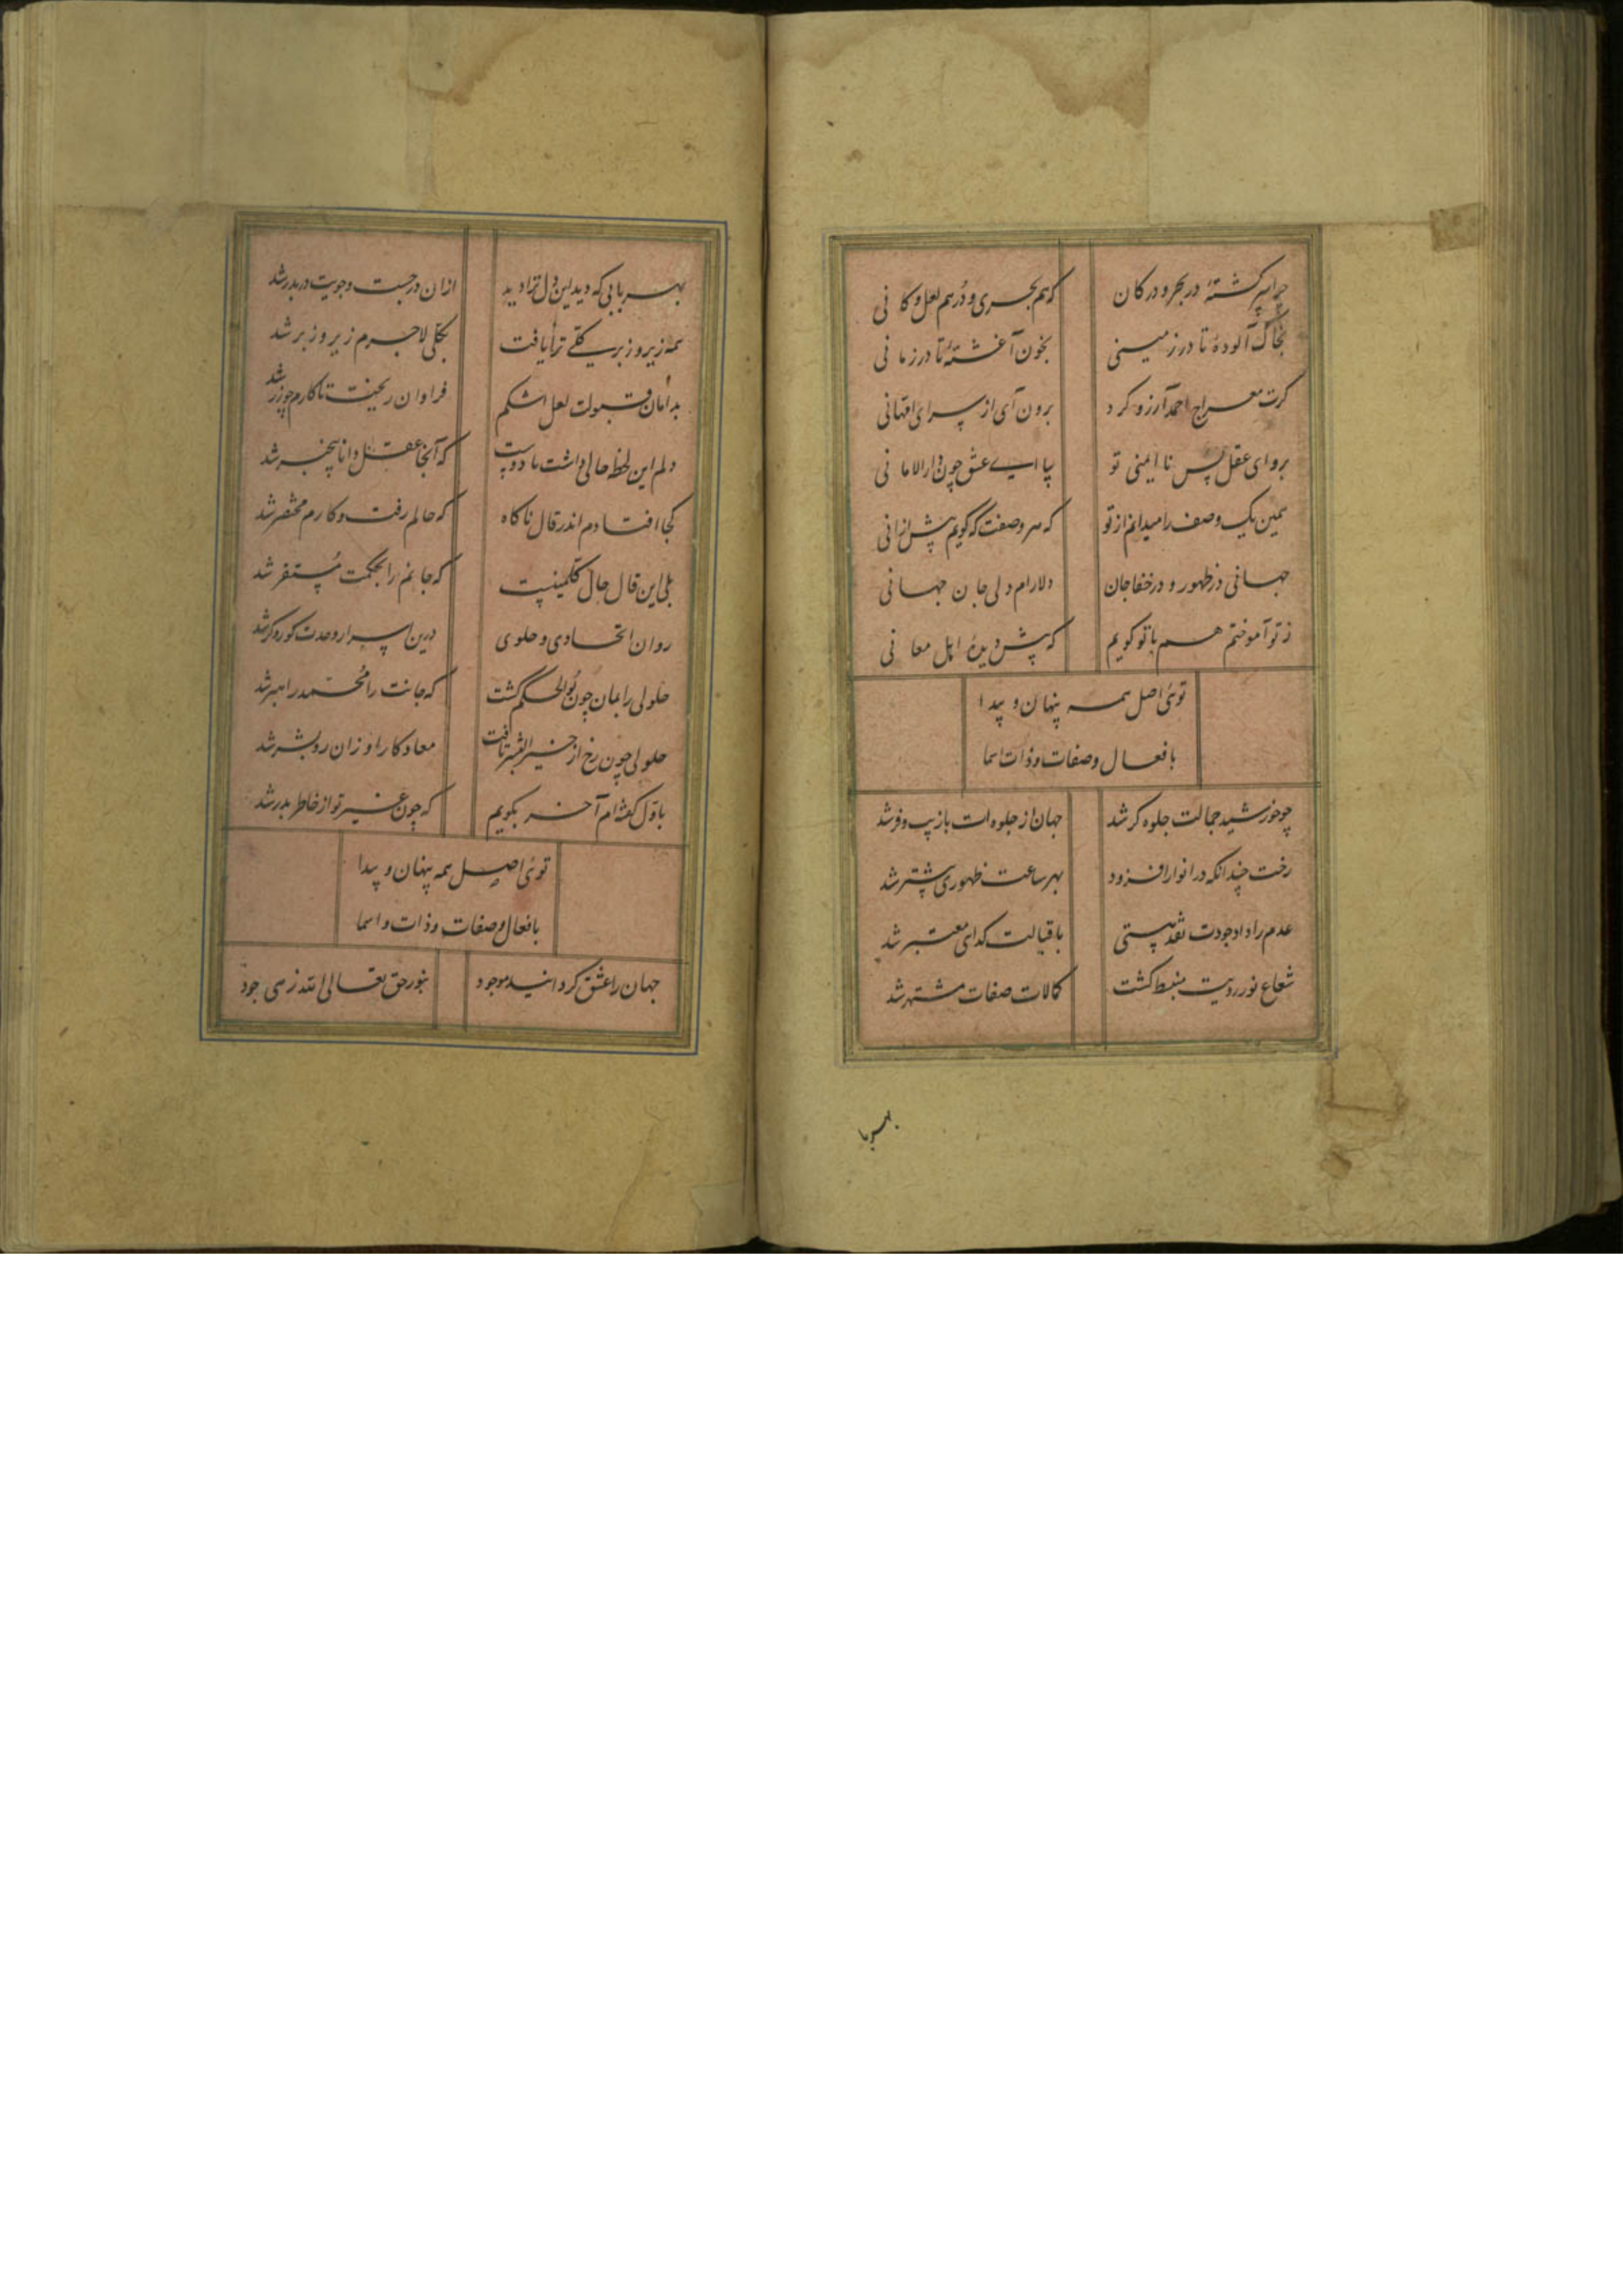 چرا سرگشتهٔ در بحر و در کان که هم بحری و دُر هم لعل و کانی
بخاک آلودهٔ تا در زمینی بخون آغشتهٔ تا در زمانی
گرت معراج احمد آرزو کرد برون آی از سرای امهانی
برو ای عقل بس ناایمنی تو بیا ای عشق چون دارالامانی
همین یک وصف را میدانم از تو که هر وصفت که گویم بیش ازانی
جهانی در ظهور و در خفا جان دلارام دلی جان جهانی
ز تو آموختم هم با تو گویم که پیش دیدهٔ اهل معانی
توئی اصل همه پنهان و پیدا
بافعال و صفات و ذات اسما
چو خورشید جمالت جلوه گر شد جهان از جلوه ات با زیب و فر شد
رخت چندانکه در انوار افزود بهر ساعت ظهوری بیشتر شد
عدم را داد جودت نقد هستی باقبالت گدای معتبر شد
شعاع نور رویت منبسط گشت کمالات صفات مشتهر شد
بهر با
بهر بابی که دید این دل ترا دید ازان در جست و جویت در بدر شد
همه زیر و زبر کلی ترا یافت بکلی لاجرم زیر و زبر شد
بدامان قبولت لعل اشکم فراوان ریخت تا کارم چو زر شد
دلم این لحظه حالی داشت با دوست که آنجا عقل دانا بیخبر شد
کجا افتادم اندر قال ناگاه که حالم رفت و کارم مختصر شد
بلی این قال حال کلمینیست که جانم را بحکمت مستقر شد
روان اتحادی و حلولی درین اسرار وحدت کور و کر شد
حلولی را بمان چون بوالحکم گشت که جانت را محمد راهبر شد
حلولی چون رخ از خیر البشر تافت معاد کار او زان رو بشر شد
باول گفته ام آخر بگویم که چون غیر تو از خاطر بدر شد
توئی اصل همه پنهان و پیدا
بافعال و صفات و ذات و اسما
جهان را عشق گردانید موجود بنور حق تعالی الله زهی جود